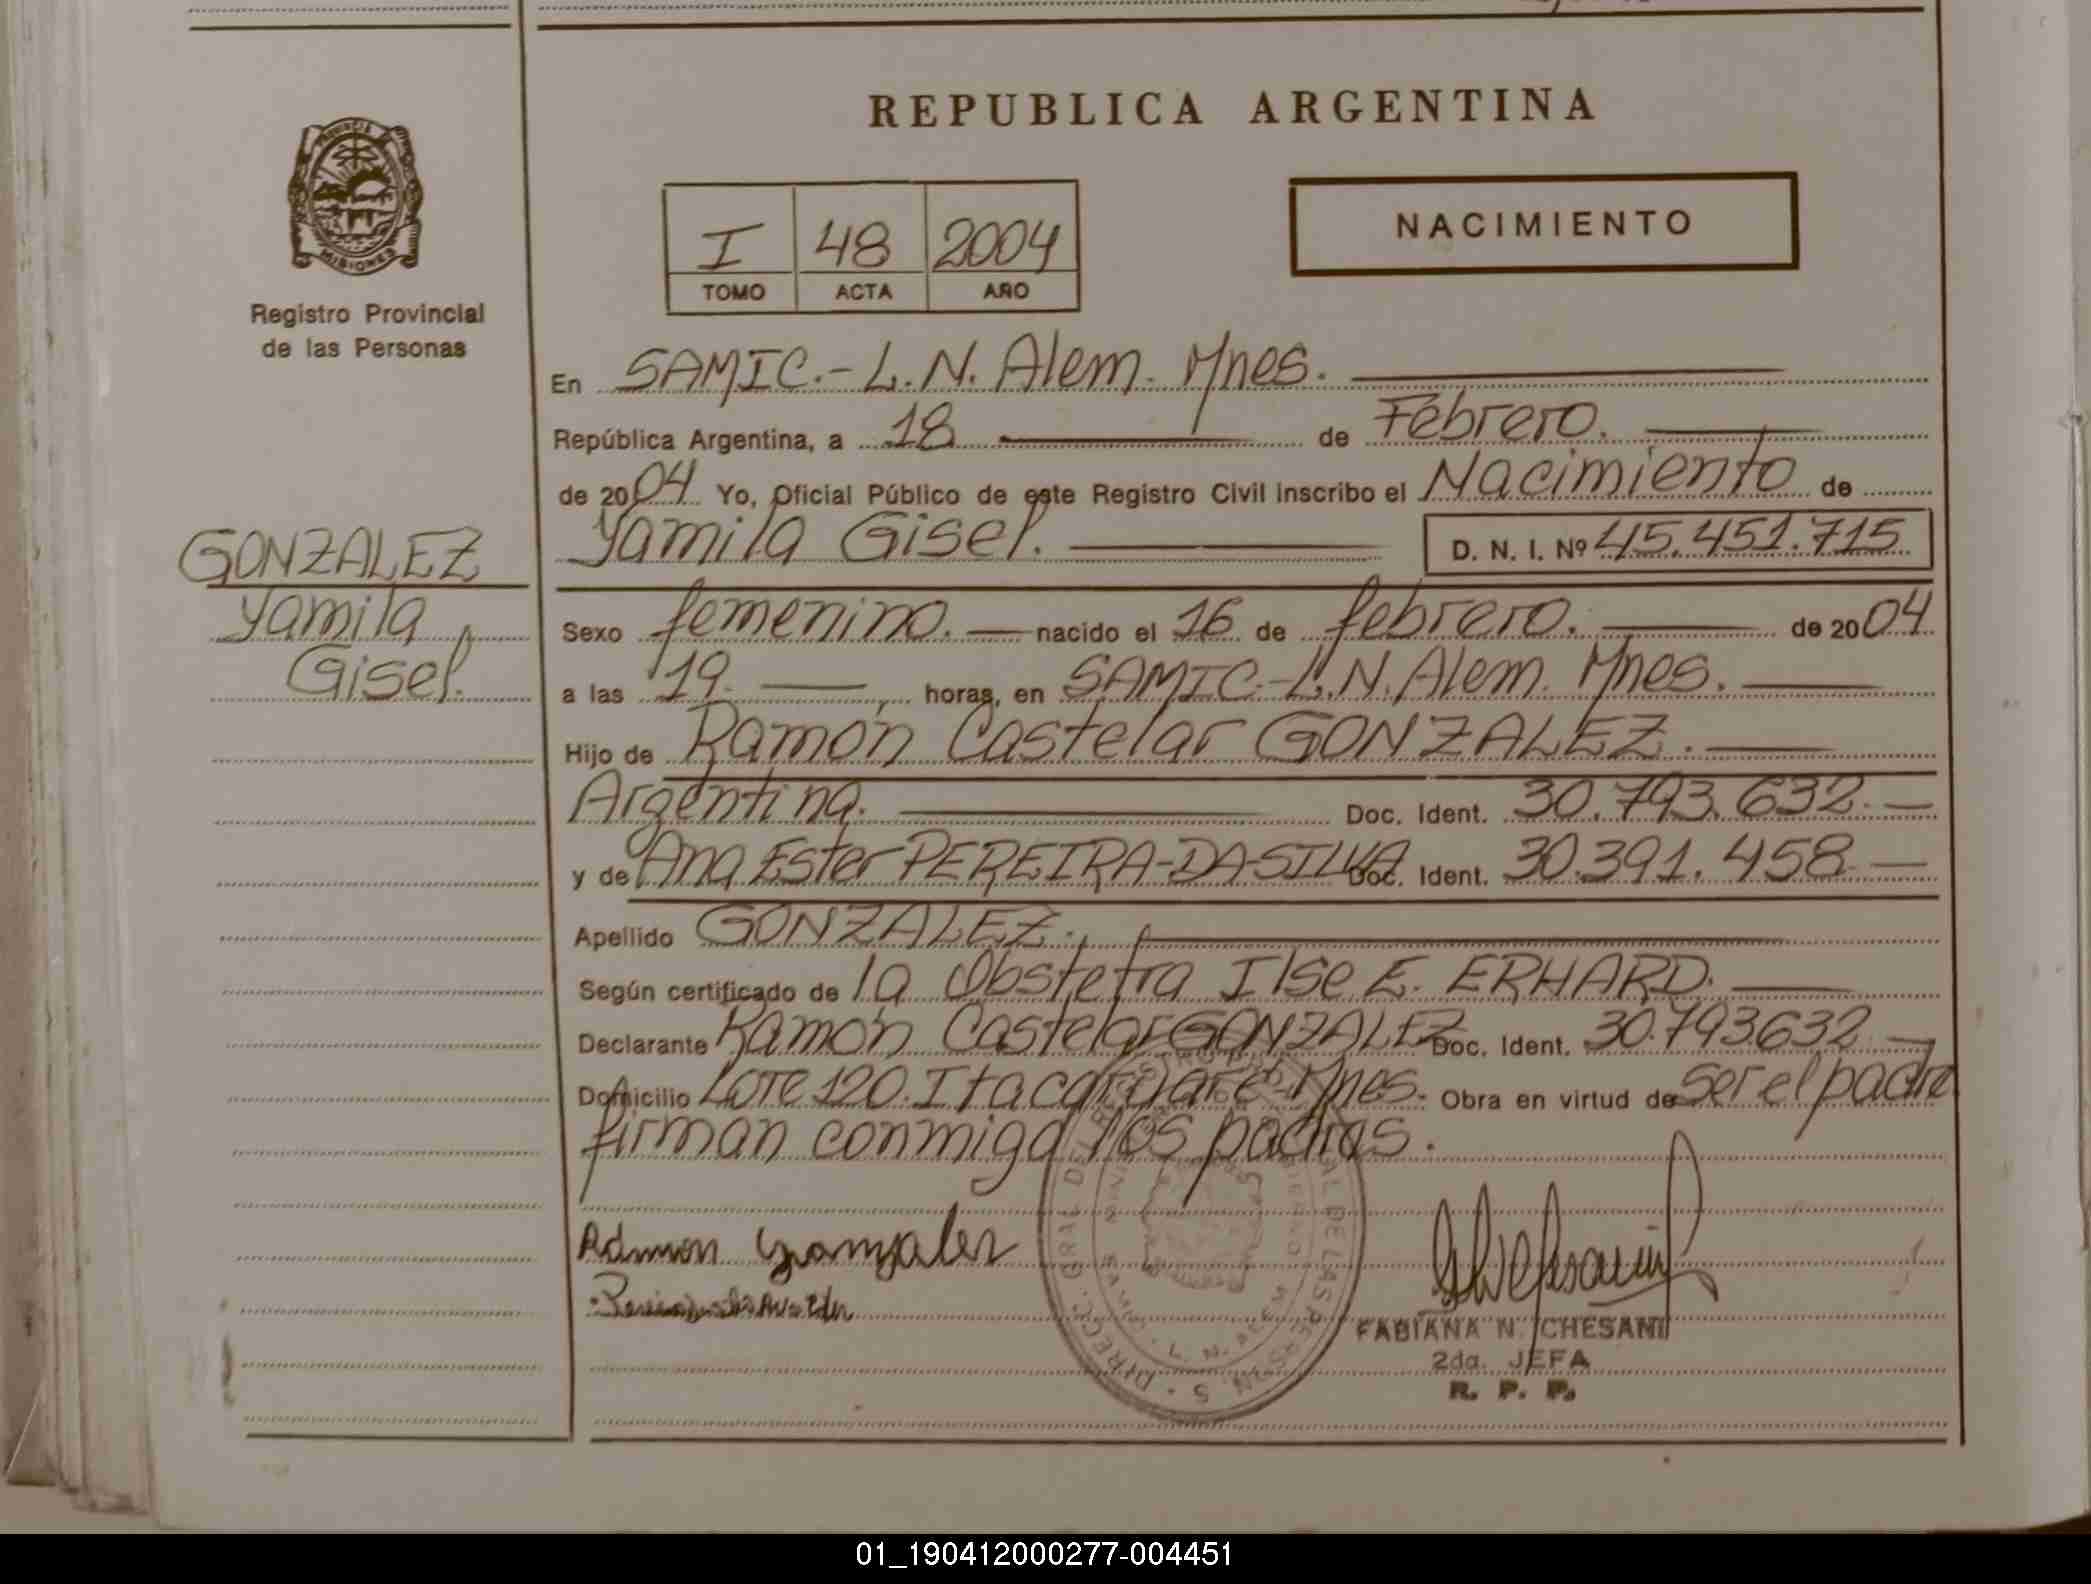 REPUBLICA ARGENTINA
PROVINCIA
MISIONES
Registro Provincial
de las Personas
I 48 2004
TOMO ACTA AÑO
NACIMIENTO
En SAMIC.- L.N. Alem. Mnes.
República Argentina, a 18 de Febrero.
de 2004 Yo, Oficial Público de este Registro Civil inscribo el Nacimiento de
Yamila Gisel. D. N. I. Nº 45.451.715
GONZALEZ
Yamila
Gisel.
Sexo femenino. nacido el 16 de febrero. de 2004
a las 19. horas, en SAMIC.-L.N. Alem. Mnes.
Hijo de Ramón Castelar GONZALEZ.
Argentina. Doc. Ident. 30.793.632.
y de Ana Ester PEREIRA-DA-SILVA Doc. Ident. 30.391.458
Apellido GONZALEZ.
Según certificado de la Obstetra Ilse E. ERHARD.
Declarante Ramón Castelar GONZALEZ Doc. Ident. 30.793632
Domicilio Lote 120. Itacaruaré Mnes. Obra en virtud de ser el padre
firman conmigo los padres.
Ramon Gonzalez
FABIANA N. CHESANI
2da. JEFA
R. P. P.
01_190412000277-004451